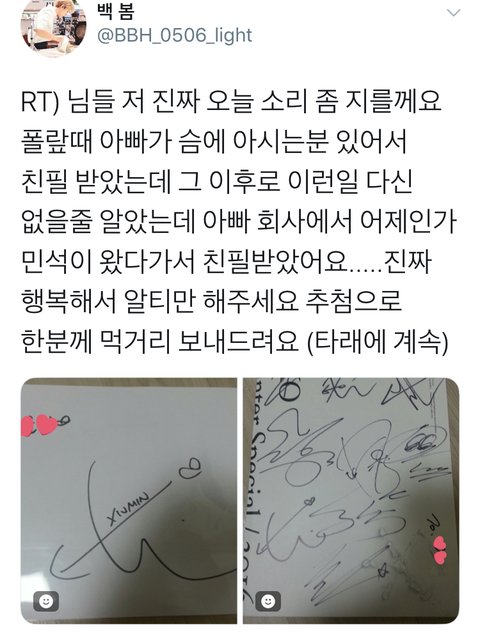 백 봄
@BBH_0506_light
RT) 님들 저 진짜 오늘 소리 좀 지를께요
폴랖때 아빠가 슴에 아시는분 있어서
친필 받았는데 그 이후로 이런일 다신
없을줄 알았는데 아빠 회사에서 어제인가
민석이 왔다가서 친필받았어요.....진짜
행복해서 알티만 해주세요 추첨으로
한분께 먹거리 보내드려요 (타래에 계속)
XIUMIN
To.